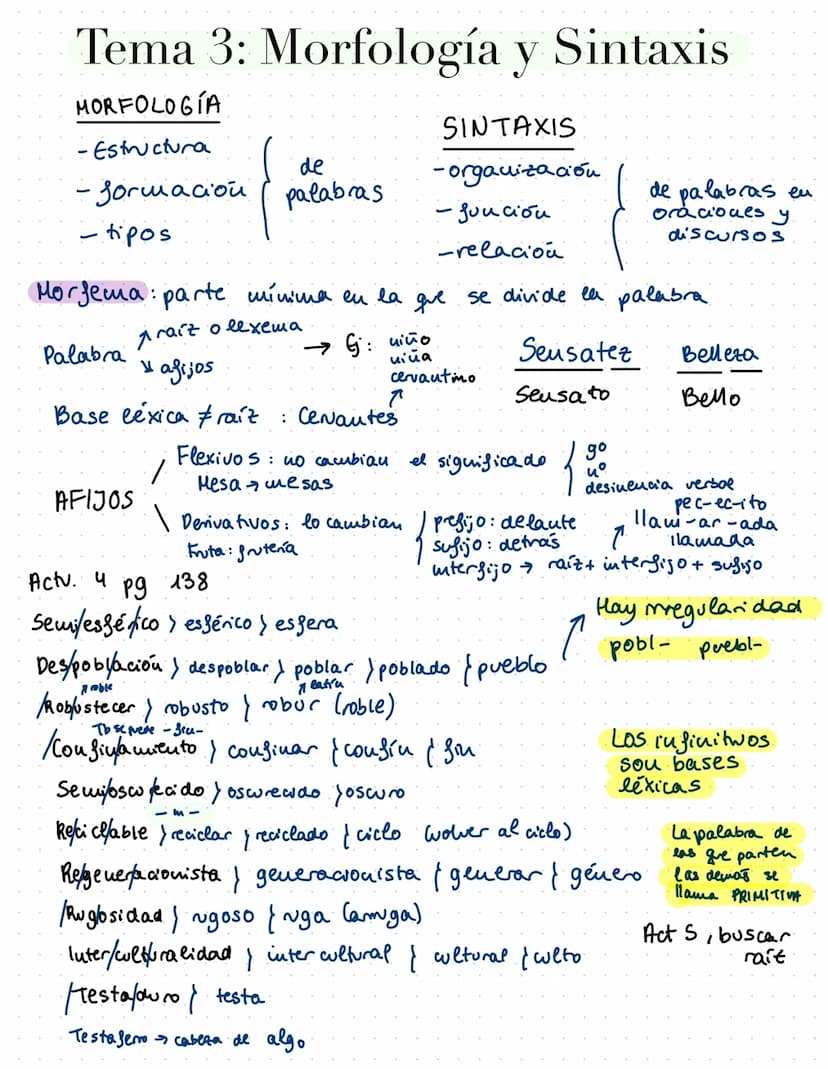 Tema 3: Morfología y Sintaxis
MORFOLOGÍA
- Estructura
- formación
- tipos
de
palabras
SINTAXIS
- organización
- función
- relación
de palabras en
oraciones y
discursos
Morfema: parte mínima en la que se divide la palabra
Palabra
↗ raíz o lexema
↘ afijos
→ Ej: niño
niña
cervantino
Sensatez
Sensato
Belleza
Bello
Base léxica ≠ raíz : Cervantes
AFIJOS
Flexivos: no cambian el significado
Mesa → mesas
gº
nº
desinencia verbal
Derivativos: lo cambian
Fruta: frutería
prefijo: delante
sufijo: detrás
interfijo → raíz + interfijo + sufijo
pec-ec-ito
llam-ar-ada
llamada
Actv. 4 pg 138
Semi/esfé/rico } esférico } esfera
Hay irregularidad
pobl- puebl-
Des/pobl/ación } despoblar } poblar } poblado } pueblo
↗ roble
↗ latín
/Robustecer } robusto } robur (roble)
Tb se puede -fin-
/Confin/amiento } confinar } confín } fin
Los infinitivos
son bases
léxicas
Semi/oscu/recido } oscurecido } oscuro
Re/cicl/able } reciclar } reciclado } ciclo (volver al ciclo)
La palabra de
las que parten
las demás se
llama PRIMITIVA
Re/gener/acionista } generacionista } generar } género
/Rug/osidad } rugoso } ruga (arruga)
Act 5, buscar
raíz
Inter/cult/uralidad } intercultural } cultural } culto
/Testa/duro } testa
Testaferro → cabeza de algo